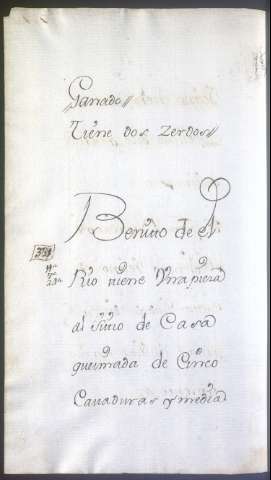 Ganado//
Tiene dos Zerdos//
Benitto de el
Rio tiene Vna pieza
al sittio de Casa
queimada de Cinco
Cauaduras y media